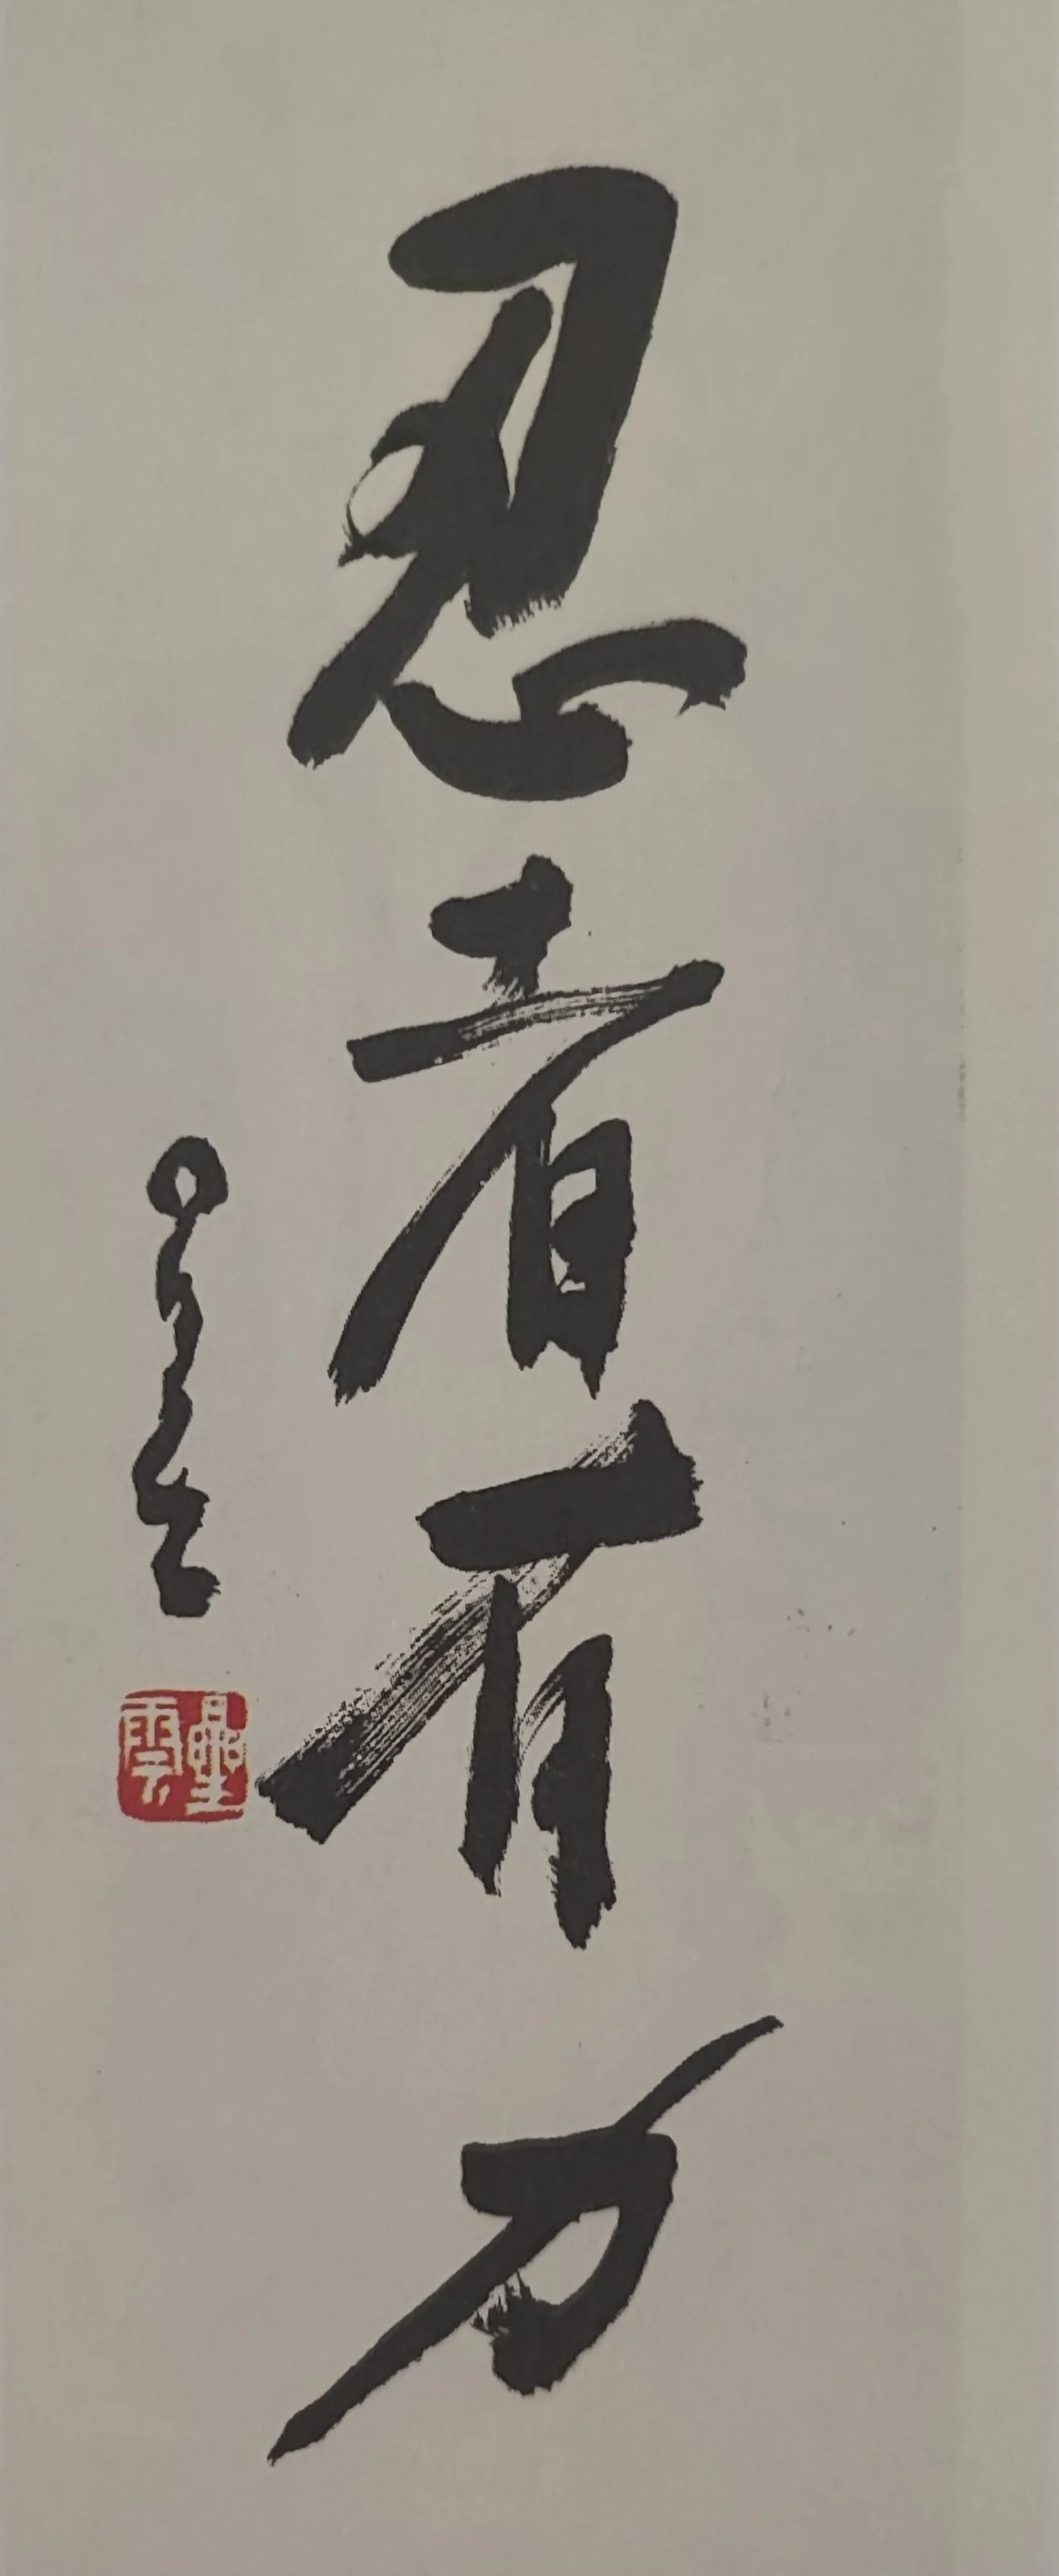 忍者有力
星云
星雲